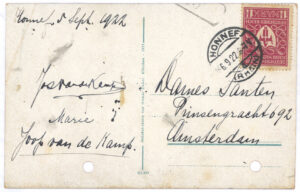 Honnef 5 Sept. 1922
Jos van de Kamp
Marie
Joop van de Kamp.
HONNEF
6.9.22
(RHEIN)
4
Dames Santen
Prinsengracht 692
Amsterdam